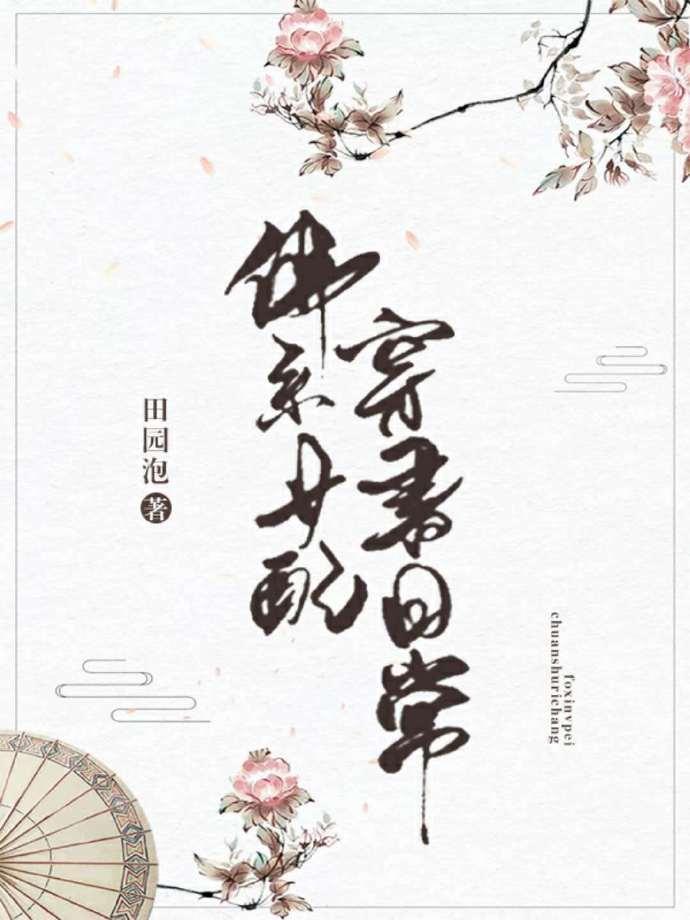 佛系女配
穿书日常
田园泡著
foxinvpei
chuanshurichang